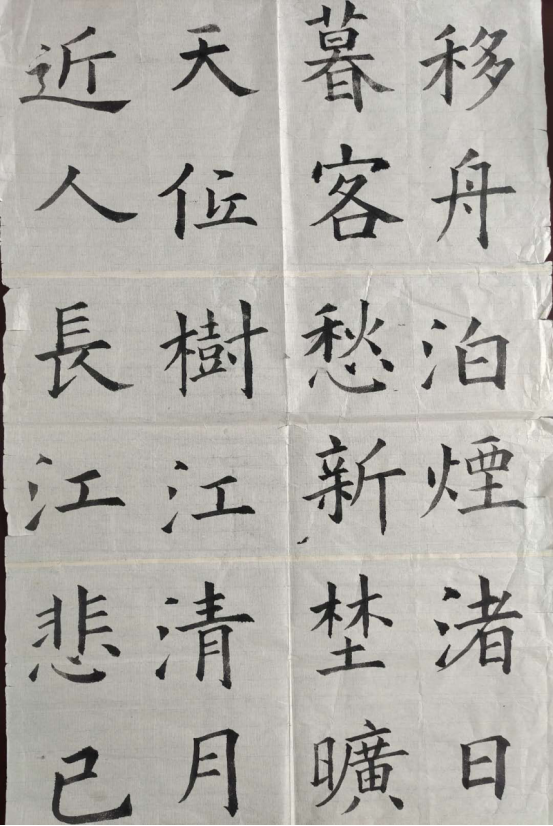 移舟泊煙渚日
暮客愁新埜曠
天低樹江清月
近人長江悲已